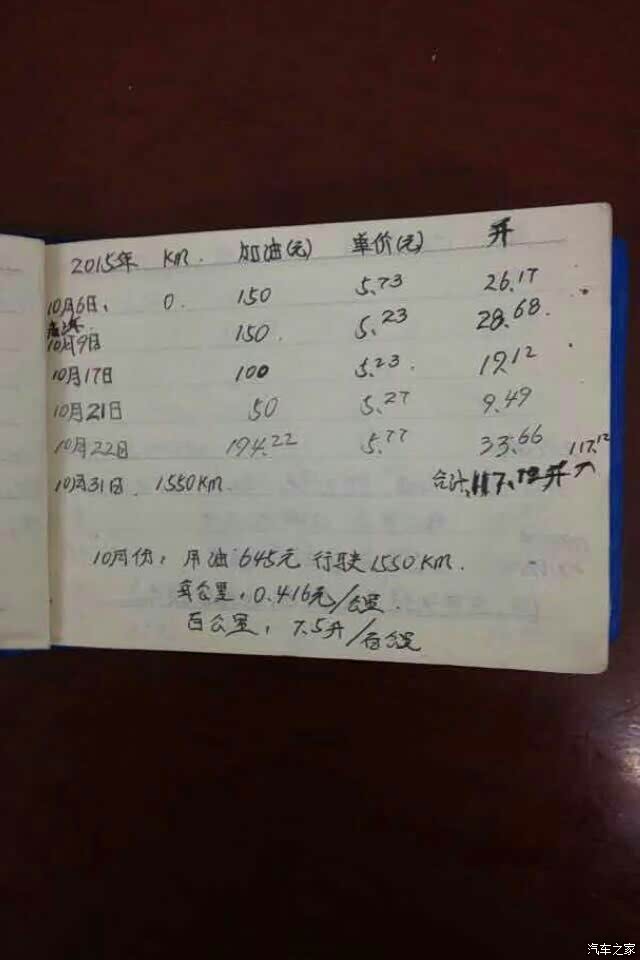 2015年 KM. 加油(元) 单价(元) 升
10月6日, 0. 150 5.73 26.17
10月9日 150. 5.23 28.68.
10月17日 100 5.23. 19.12
10月21日 50 5.27 9.49
10月22日 194.22 5.77 33.66 117.12
10月31日. 1550KM. 合计 117.12升
10月份: 用油645元 行驶1550KM.
每公里: 0.416元/公里.
百公里: 7.5升/百公里
汽车之家